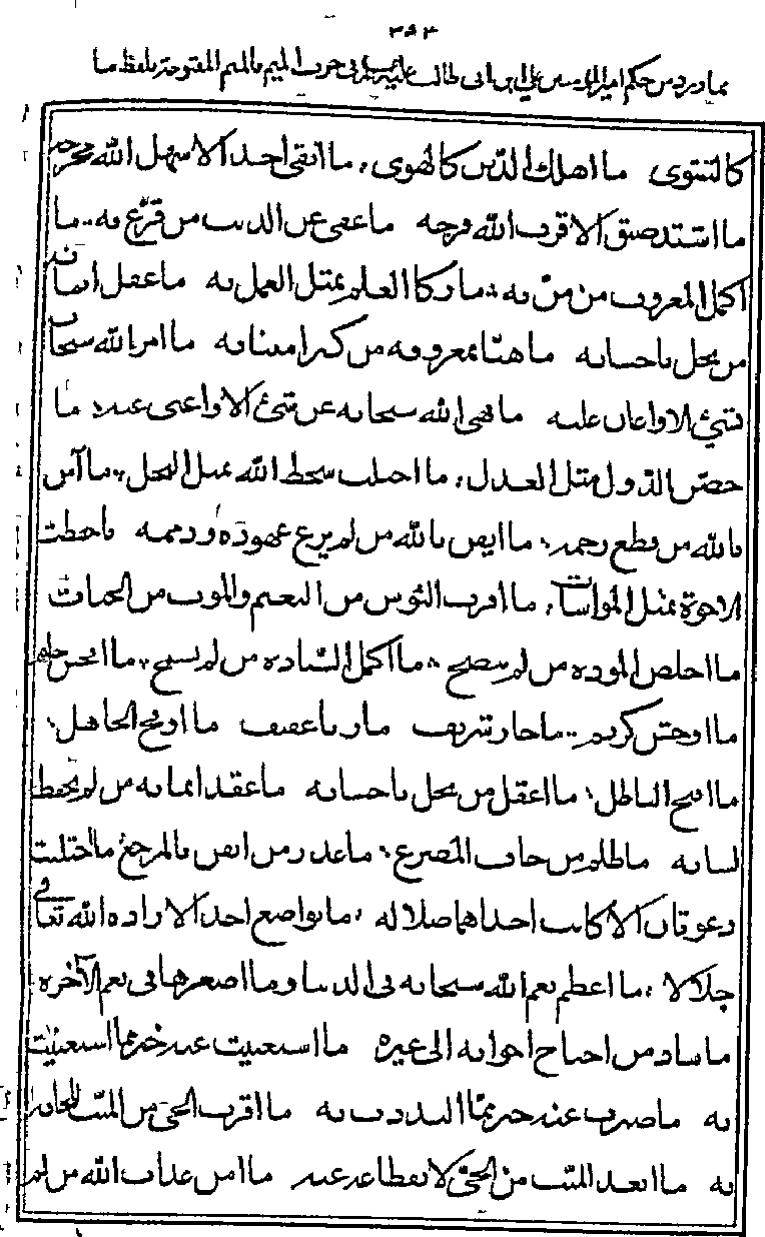 ٣٩٤
مما ورد من حكم امير المؤمنين علي ابن ابي طالب عليه السلام في حرف الميم بالميم المفتوحة بلفظ ما
كالتقوى ما اهلك الدين كالهوى ما اتقى احد الا سهل الله مخرجه
ما اشتد ضيق الا قرب الله فرجه ما عفى عن الذنب من قرّع به ما
اكمل المعروف من منّ به ما زكا العلم بمثل العمل به ما عقل ايمانه
من بخل باحسانه ما هنّأ بمعروفه من كثر امتنانه ما امر الله سبحانه
بشيء الا واعان عليه ما نهى الله سبحانه عن شيء الا واغنى عنه ما
حصّن الدول مثل العدل ما اجلب سخط الله بمثل البخل ما آمن
بالله من قطع رحمه ما ايقن بالله من لم يرع عهوده وذممه ما حفظت
الاخوة بمثل المواسات ما اقرب البؤس من النعيم والموت من الحيات
ما اخلص المودة من لم ينصح ما اكمل السيادة من لم يسمح ما افحش حليم
ما اوحش كريم ما جار شريف ما زنا عفيف ما اوقح الجاهل
ما اقبح الباطل ما اعقل من بخل باحسانه ما عقد ايمانه من لم يحفظ
لسانه ما ظلم من خاف المصرع ما غدر من ايقن بالمرجع ما اختلفت
دعوتان الا كانت احداهما ضلالة ما تواضع احد الا زاده الله تعالى
جلالا ما اعظم نعم الله سبحانه في الدنيا وما اصغرها في نعم الآخرة
ما ساد من احتاج اخوانه الى غيره ما استغنيت عنه خير مما استغنيت
به ما صرت عنه خير مما البدرت به ما اقرب الحي من الميت للحاقه
به ما ابعد الميت من الحي لانقطاعه عنه ما امن عذاب الله من لم